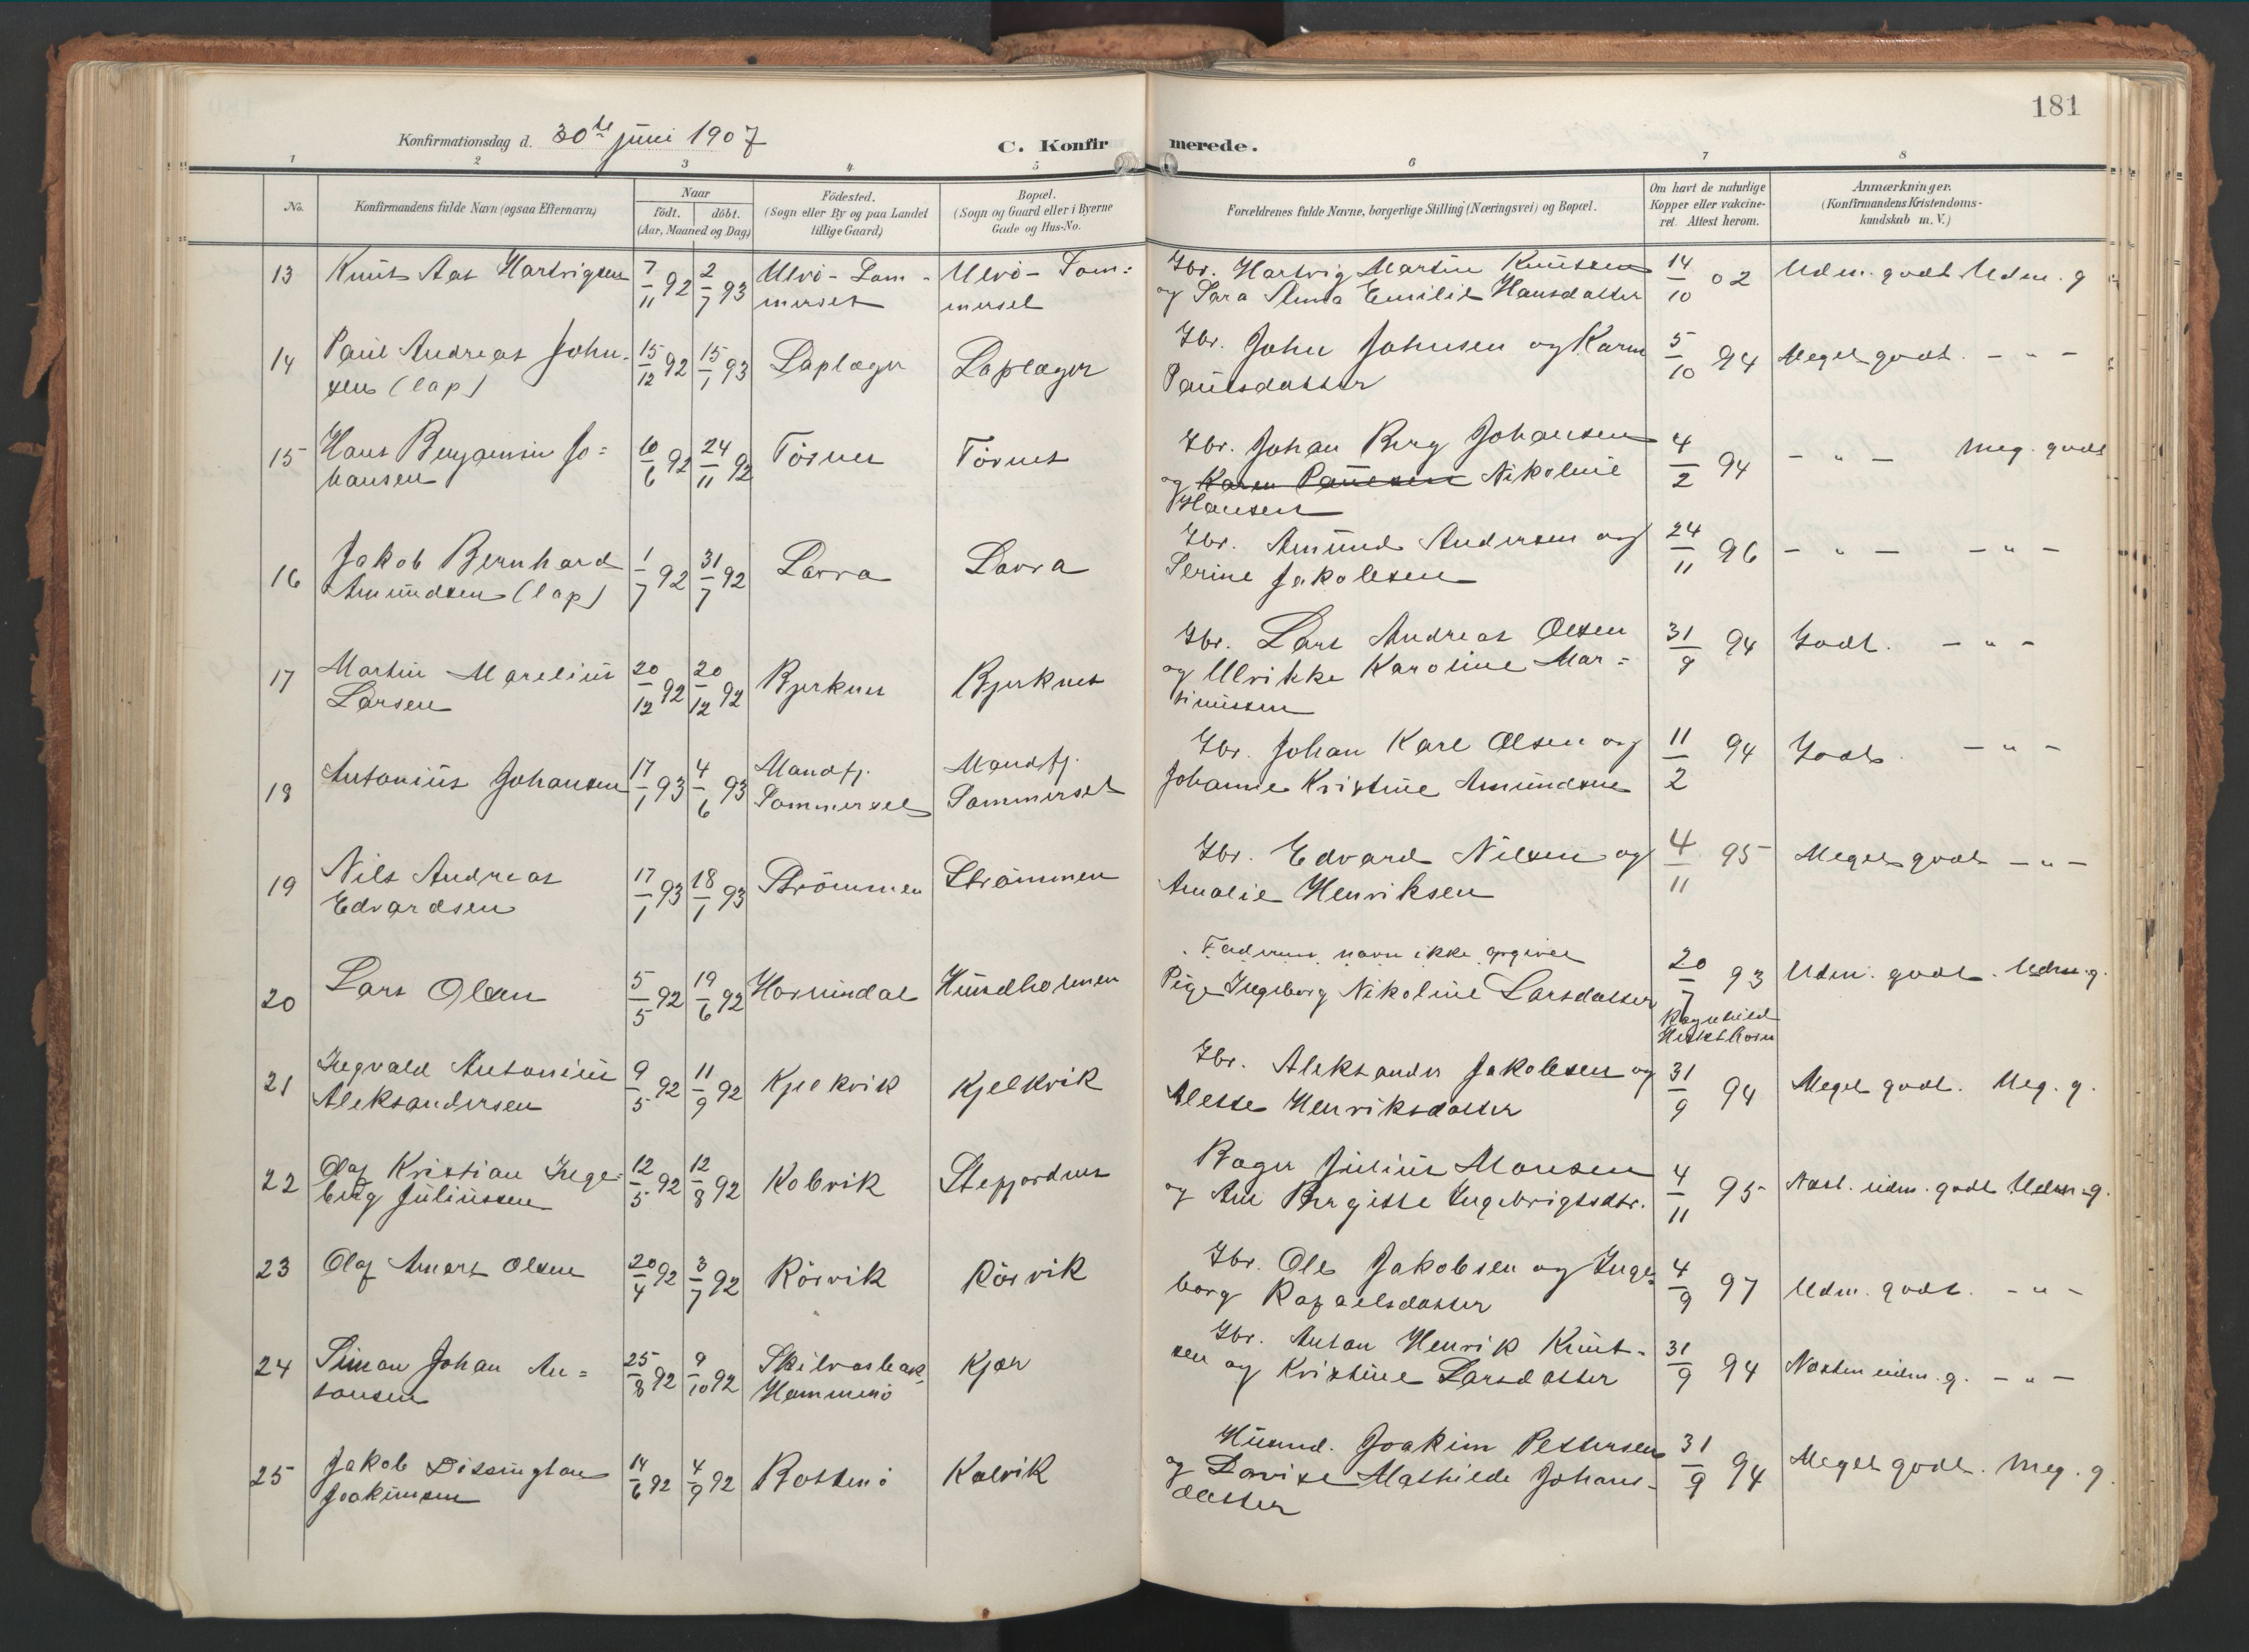 181
Konfirmationsdag d. 30te juni 1907
C. Konfirmerede.
1 2 3 4 5 6 7 8
No.
Konfirmandens fulde Navn (ogsaa Efternavn)
Naar
födt. döbt.
(Aar, Maaned og Dag)
Födested.
(Sogn eller By og paa Landet
tillige Gaard)
Bopæl.
(Sogn og Gaard eller i Byerne
Gade og Hus-No.
Forældrenes fulde Navne, borgerlige Stilling (Næringsvei) og Bopæl.
Om havt de naturlige
Kopper eller vakcine-
ret. Attest herom.
Anmærkninger.
(Konfirmandens Kristendoms-
kundskab m. V.)
13 Knut Aas Hartvigsen 7/11 92 2/7 93 Ulvö - Som- Ulvö - Som= Gbr. Hartvig Martin Knutsen 14/10 02 Udm. godt Udm. g
merset merset og Sara Anna Emilie Hansdatter
14 Paul Andreas John- 15/12 92 15/1 93 Laplæger Laplæger Gbr. John Johnsen og Karen 5/10 94 Meget godt. - " -
sen (lap) Paulsdatter
15 Hans Benjamin Jo= 10/6 92 24/11 92 Törnes Törnes Gbr. Johan Berg Johansen 4/2 94 - " - Meg. godt
hansen og Karen Paulsen Nikoline
Hansen
16 Jakob Bernhard 1/7 92 31/7 92 Lavra Lavra Gbr. Amund Andersen og 24/11 96 - " - - " -
Amundsen (lap) Serine Jakobsen
17 Martin Marelius 20/12 92 20/12 92 Bjerknes Bjerknes Gbr. Lars Andreas Olsen 31/9 94 Godt. - " -
Larsen og Ulrikke Karoline Mar=
tinussen
18 Antonius Johansen 17/1 93 4/6 93 Mandfj. Mandfj. Gbr. Johan Karl Olsen og 11/2 94 Godt. - " -
Sommerset Sommerset Johanne Kristine Amundsen
19 Nils Andreas 17/1 93 18/1 93 Strömmen Strömmen Gbr. Edvard Nilsen og 4/11 95 Meget godt - " -
Edvardsen Amalie Henriksen
20 Lars Olsen 5/5 92 19/6 92 Hornindal Hundholmen Faderens navn ikke opgivet 20/7 93 Udm. godt. Udm. g.
Pige Ingeborg Nikoline Larsdatter
Ragnhild
21 Ingvald Antonius 9/5 92 11/9 92 Kjelkvik Kjelkvik Gbr. Aleksander Jakobsen og 31/9 94 Meget godt. Meg. g.
Aleksandersen Alette Henriksdatter
22 Olaf Kristian Inge= 12/5 92 12/8 92 Kobvik Stefjordnes Bager Julius Monsen 4/11 95 Næst. udm. godt Udm. g.
brig Juliussen og Ane Bergitte Ingebrigtsdtr.
23 Olaf Aners Olsen 20/4 92 3/7 92 Rörvik Rörvik Gbr. Ole Jakobsen og Inge= 4/9 97 Udm. godt. - " -
borg Rafaelsdatter
24 Simon Johan An= 25/8 92 9/10 92 Skilvasbak. Kjær Gbr. Anton Henrik Knut- 31/9 94 Næsten udm. g. - " -
tonsen Hammerö sen og Kristine Larsdatter
25 Jakob Dissington 14/6 92 4/9 92 Rottenö Kalvik Husmd. Joakim Pettersen 31/9 94 Meget godt. Meg. g.
Joakimsen og Lovise Mathilde Johans-
datter